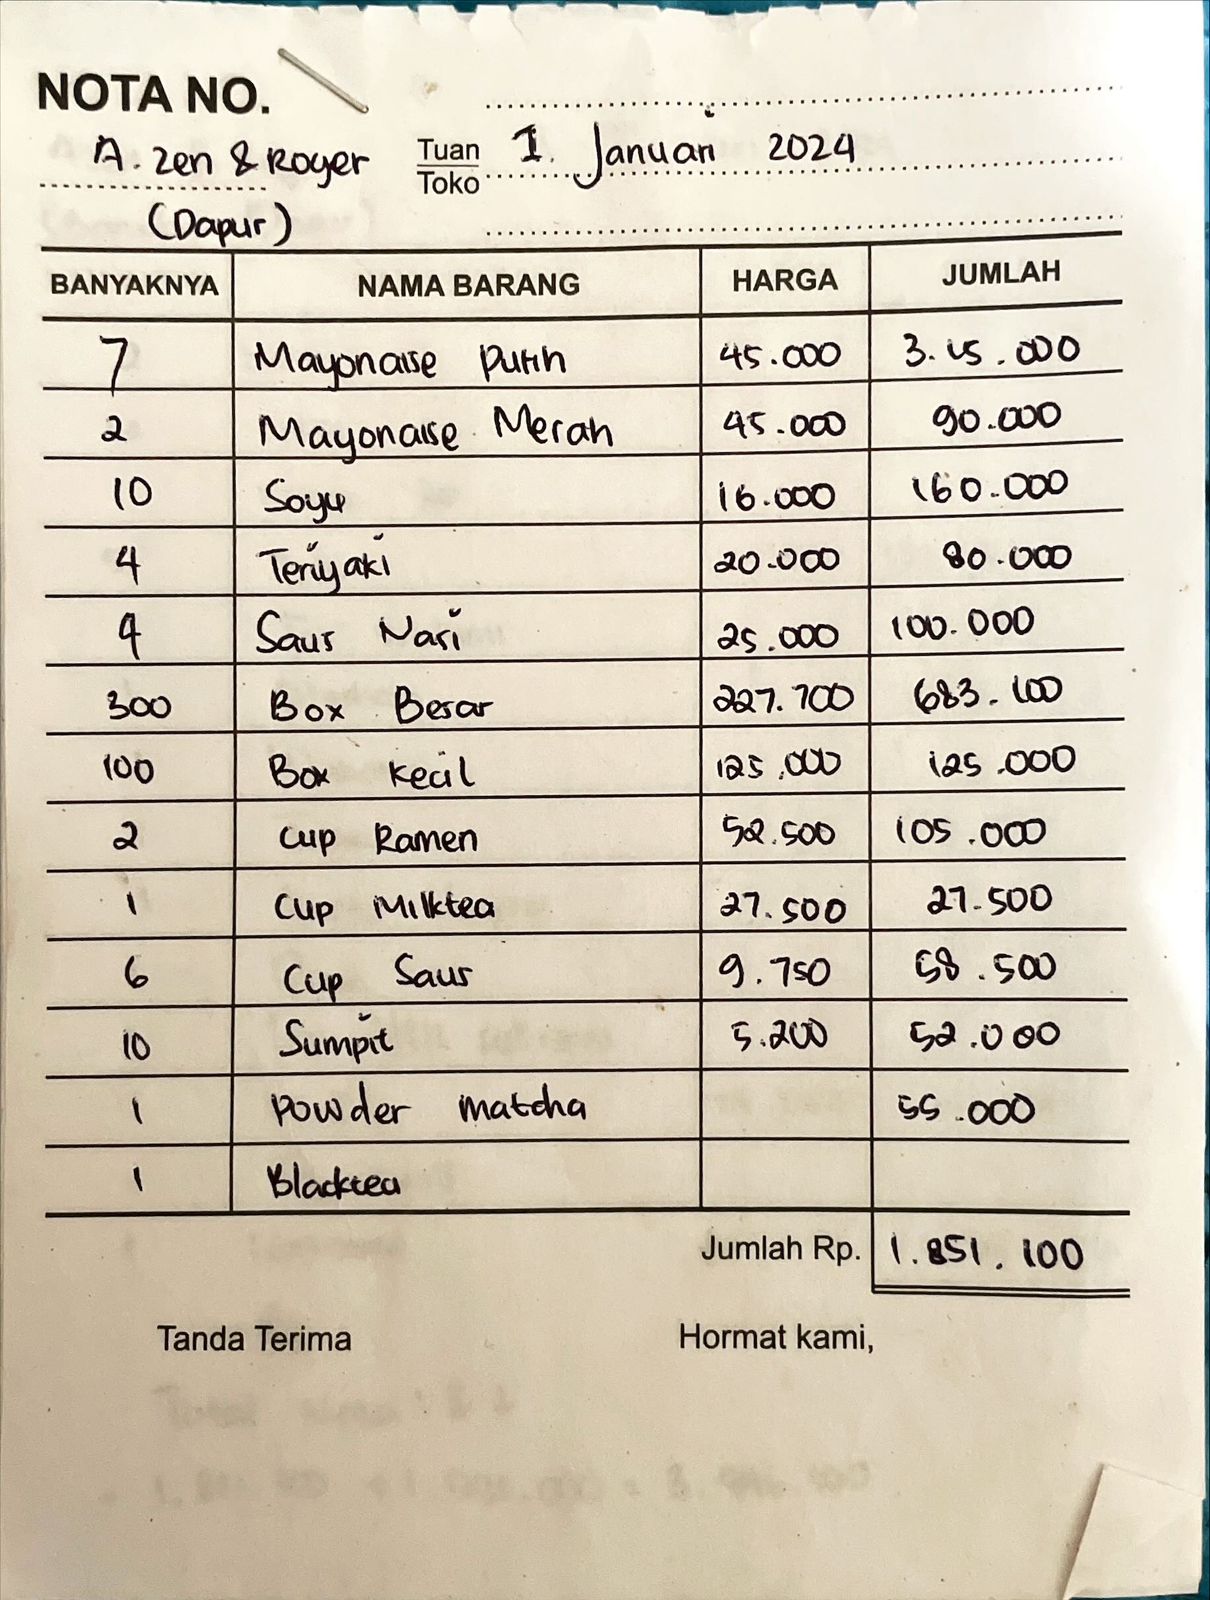 NOTA NO.
A. Zen & Royer
Tuan
Toko
1. Januari 2024
(Dapur)
BANYAKNYA NAMA BARANG HARGA JUMLAH
7 Mayonaise Putih 45.000 3.15.000
2 Mayonaise Merah 45.000 90.000
10 Soyu 16.000 160.000
4 Teriyaki 20.000 80.000
4 Saus Nasi 25.000 100.000
300 Box Besar 227.700 683.100
100 Box Kecil 125.000 125.000
2 Cup Ramen 52.500 105.000
1 Cup Milktea 27.500 27.500
6 Cup Saus 9.750 58.500
10 Sumpit 5.200 52.000
1 Powder matcha 55.000
1 Blacktea
Jumlah Rp. 1.851.100
Tanda Terima Hormat kami,